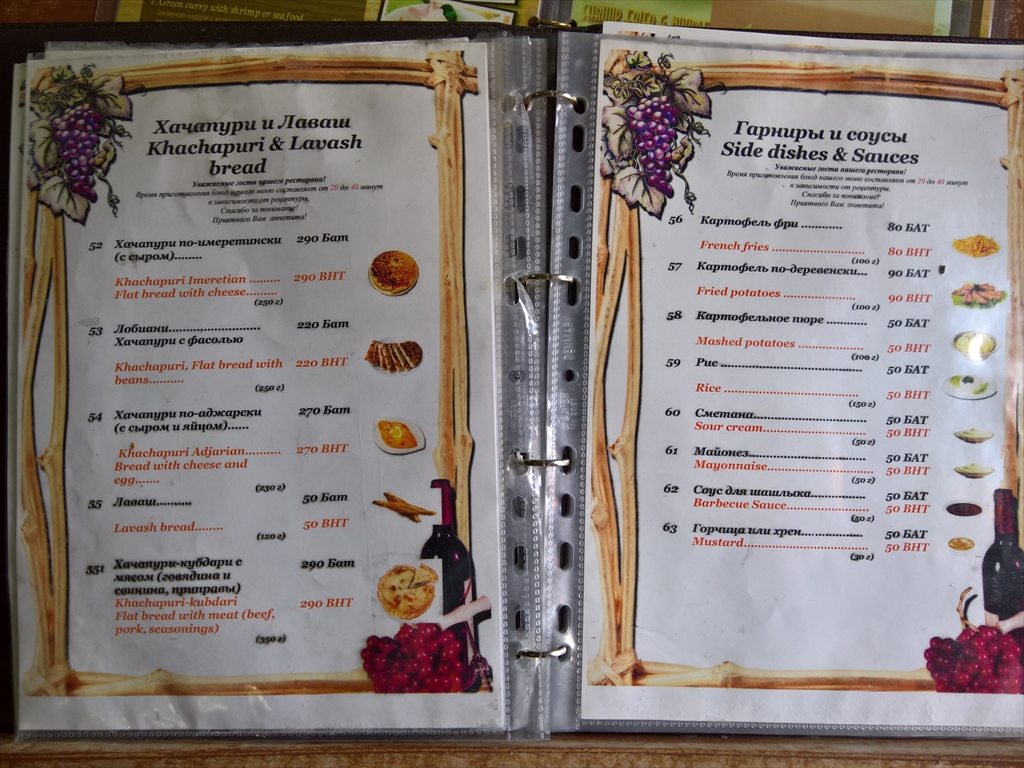 1. Green curry with shrimp or sea food
Хачапури и Лаваш
Khachapuri & Lavash
bread
Уважаемые гости нашего ресторана!
Время приготовления блюд нашего меню составляет от 20 до 40 минут
в зависимости от рецептуры.
Спасибо за понимание!
Приятного Вам аппетита!
52 Хачапури по-имеретински 290 Бат
(с сыром)........
Khachapuri Imeretian ......... 290 BHT
Flat bread with cheese.........
(250 г)
53 Лобиани............................ 220 Бат
Хачапури с фасолью
Khachapuri, Flat bread with 220 BHT
beans..........
(250 г)
54 Хачапури по-аджарски 270 Бат
(с сыром и яйцом)......
Khachapuri Adjarian.......... 270 BHT
Bread with cheese and
egg.......
(230 г)
55 Лаваш........... 50 Бат
Lavash bread........ 50 BHT
(120 г)
551 Хачапури-кубдари с 290 Бат
мясом (говядина и
свинина, приправы)
Khachapuri-kubdari 290 BHT
Flat bread with meat (beef,
pork, seasonings)
(350 г)
Гарниры и соусы
Side dishes & Sauces
Уважаемые гости нашего ресторана!
Время приготовления блюд нашего меню составляет от 20 до 40 минут
в зависимости от рецептуры.
Спасибо за понимание!
Приятного Вам аппетита!
56 Картофель фри ............ 80 БАТ
French fries ...................... 80 BHT
(100 г)
57 Картофель по-деревенски... 90 БАТ
Fried potatoes ...................... 90 BHT
(100 г)
58 Картофельное пюре ............ 50 БАТ
Mashed potatoes .................... 50 BHT
(100 г)
59 Рис ............................................ 50 БАТ
Rice ......................................... 50 BHT
(150 г)
60 Сметана.................................. 50 БАТ
Sour cream................................ 50 BHT
(50 г)
61 Майонез................................... 50 БАТ
Mayonnaise................................ 50 BHT
(50 г)
62 Соус для шашлыка................. 50 БАТ
Barbecue Sauce......................... 50 BHT
(50 г)
63 Горчица или хрен................... 50 БАТ
Mustard...................................... 50 BHT
(30 г)